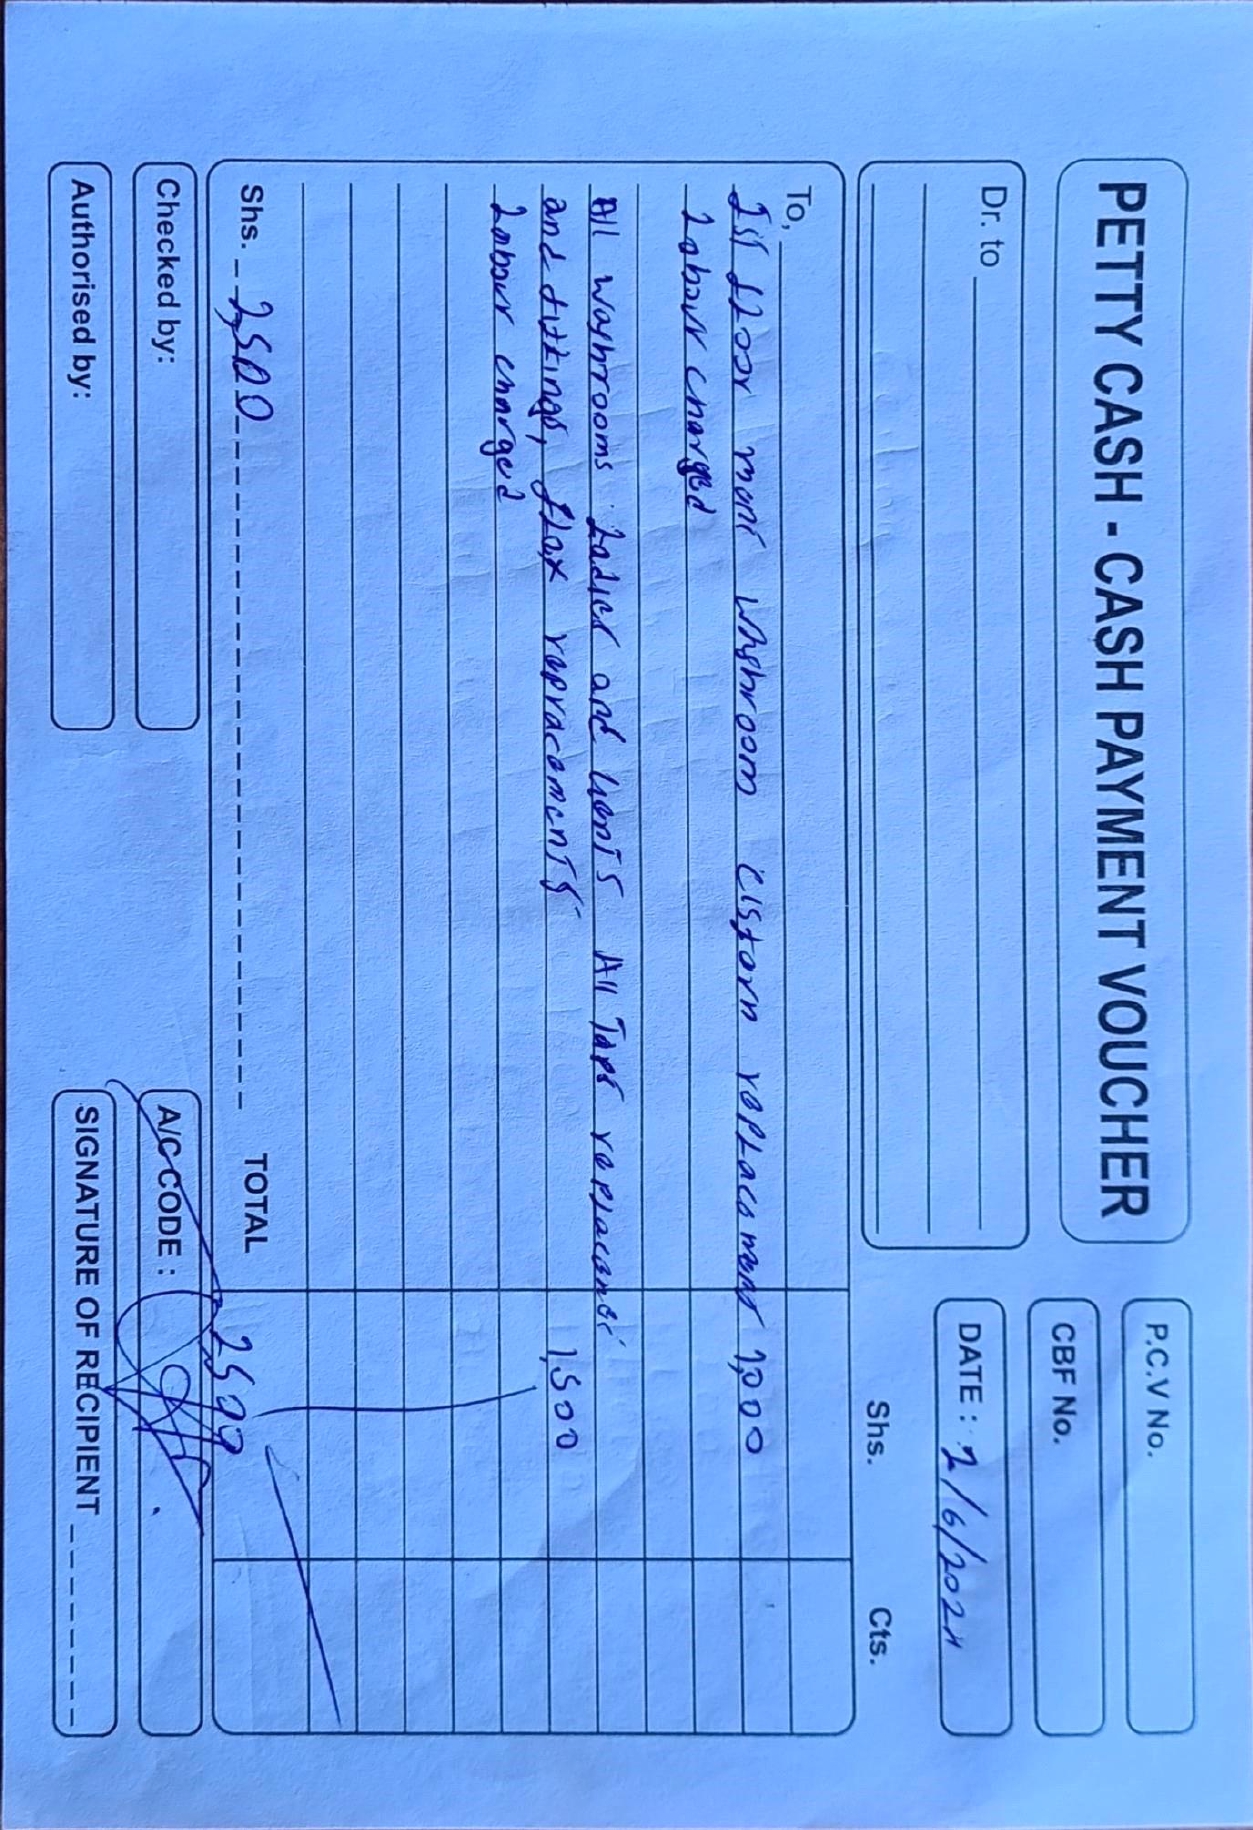 PETTY CASH - CASH PAYMENT VOUCHER
P.C.V No.
CBF No.
Dr. to
DATE : 2/6/2024
Shs. Cts.
To,
Ist floor mens washroom cistern replacement 1,000
Labour charged
All washrooms Ladies and Gents All Taps
and fittings, flex 1,500
Labour charged
Shs. 2,500 TOTAL 2,500
Checked by:
A/C CODE :
Authorised by:
SIGNATURE OF RECIPIENT